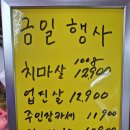 금일 행사
100g
치마살 12,900
업진살 12,900
주인장카세 11,900